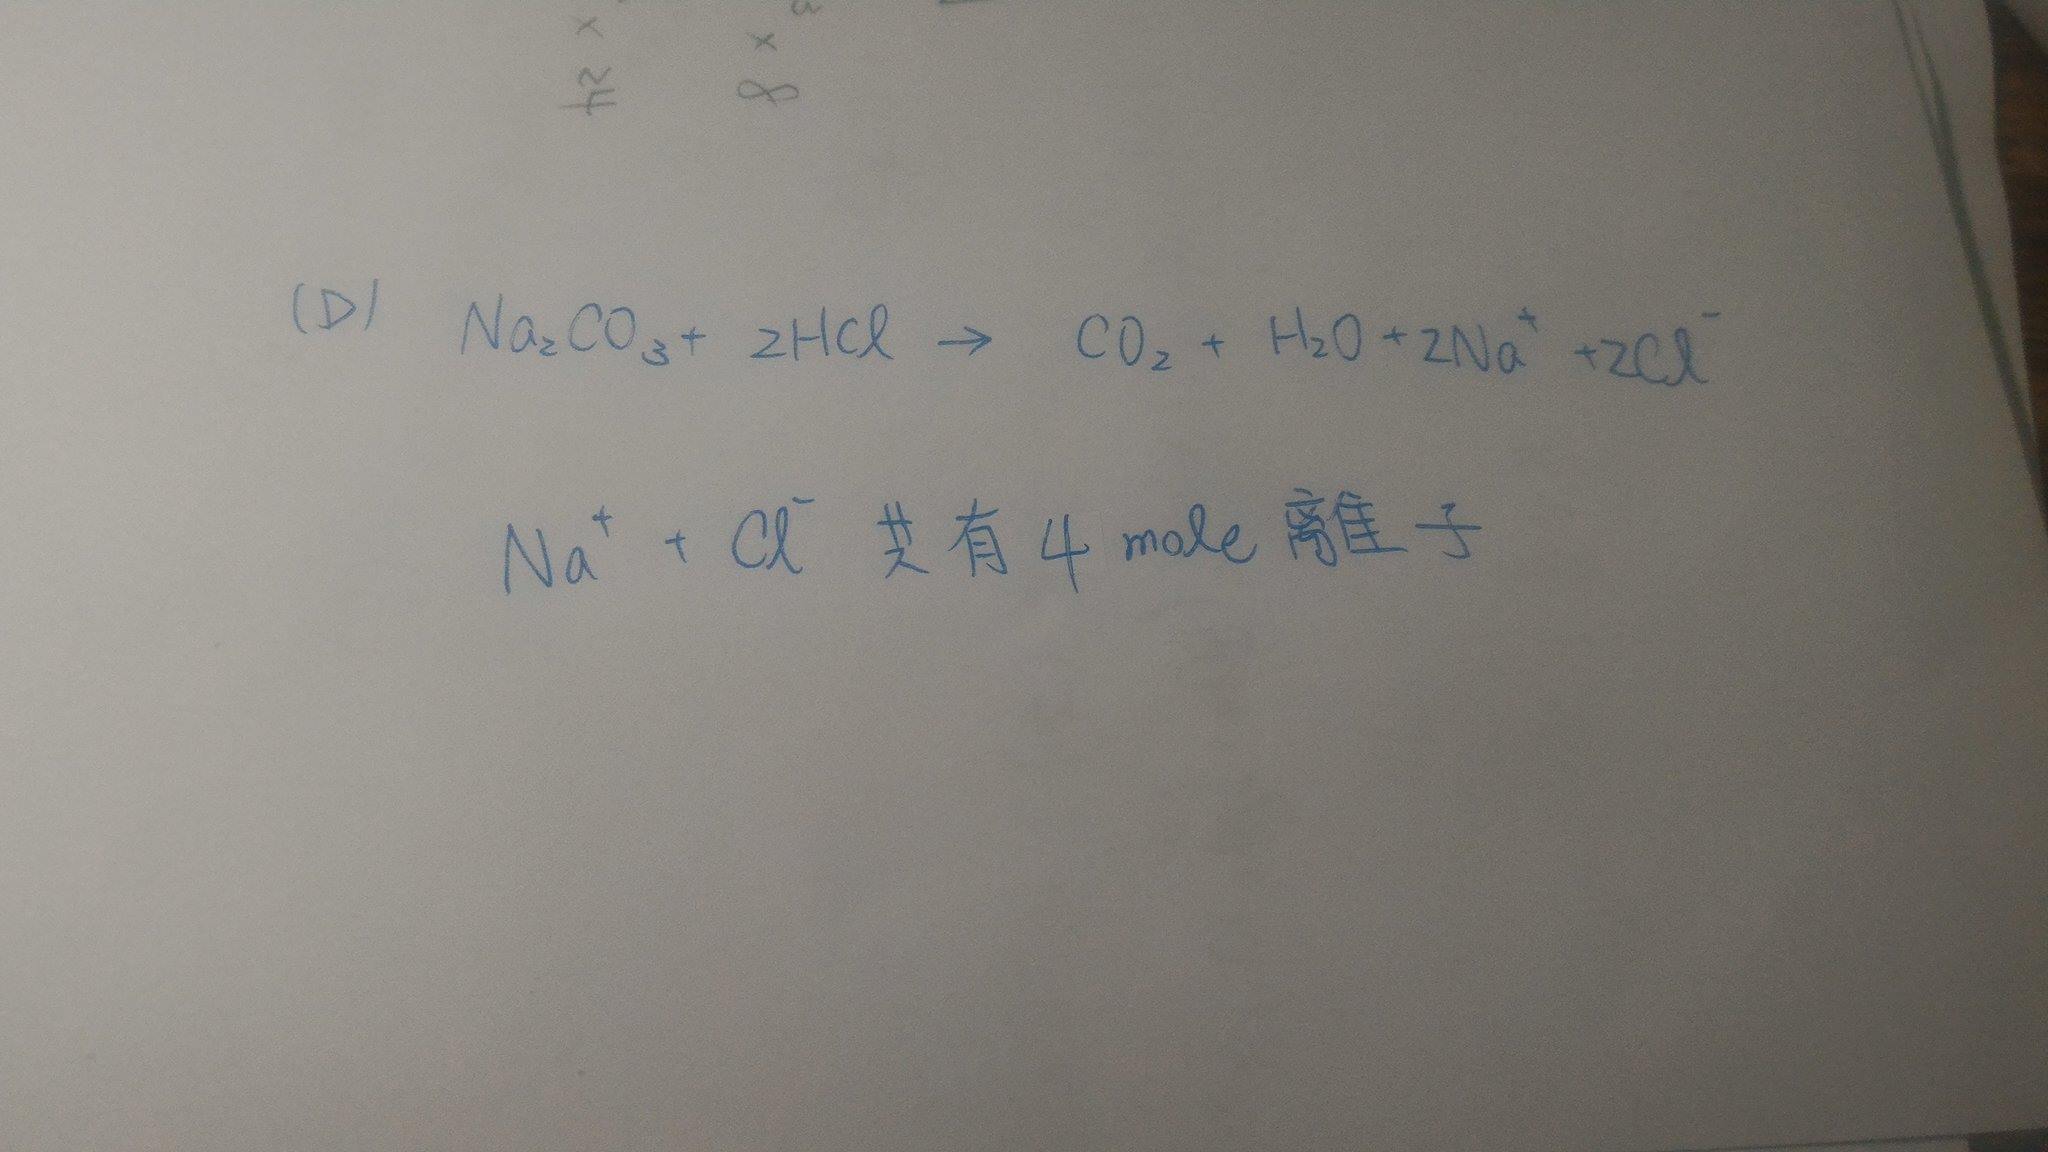 (D) Na₂CO₃ + 2HCl → CO₂ + H₂O + 2Na⁺ + 2Cl⁻
Na⁺ + Cl⁻ 共有 4 mole 離子